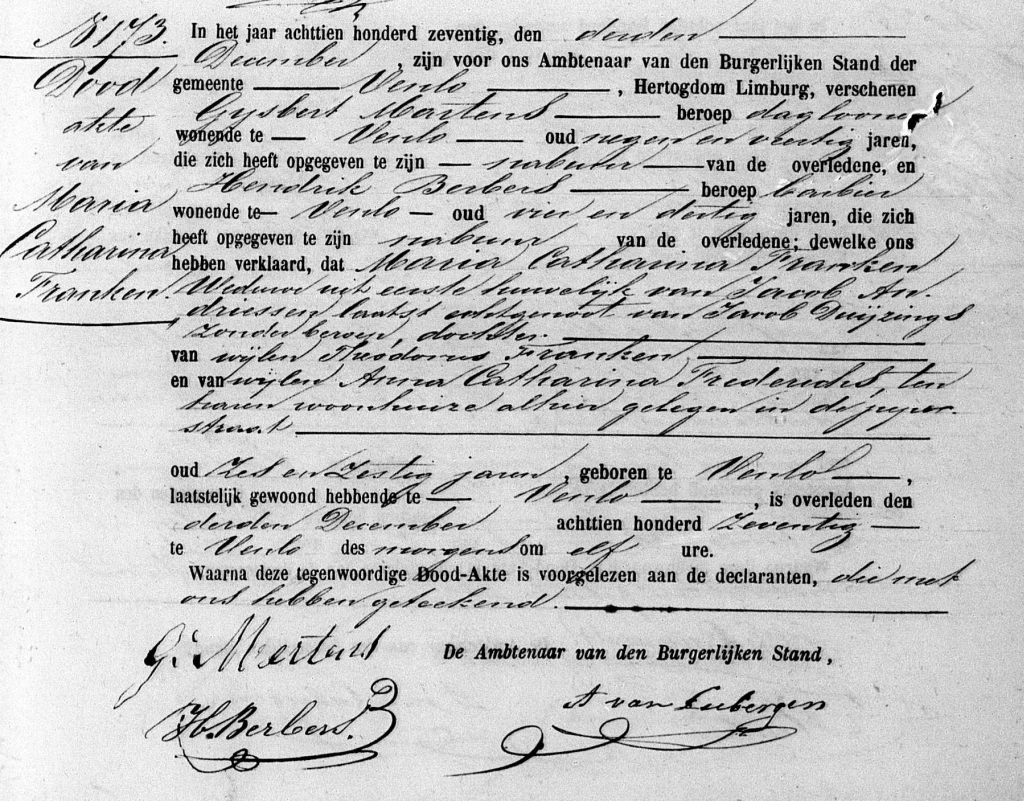 N 173.
Dood
akte
van
Maria
Catharina
Franken.
In het jaar achttien honderd zeventig, den derden
December, zijn voor ons Ambtenaar van den Burgerlijken Stand der
gemeente Venlo, Hertogdom Limburg, verschenen
Gysbert Martens beroep daglooner
wonende te Venlo oud negen en veertig jaren,
die zich heeft opgegeven te zijn nabuur van de overledene, en
Hendrik Berbers beroep barbier
wonende te Venlo oud vier en dertig jaren, die zich
heeft opgegeven te zijn nabuur van de overledene; dewelke ons
hebben verklaard, dat Maria Catharina Franken
Weduwe uit eerste huwelijk van Jacob An-
driessen laatst echtgenoot van Jacob Duijzings
zonder beroep, dochter
van wijlen Theodorus Franken,
en van wijlen Anna Catharina Frederichs, ten
haren woonhuize alhier gelegen in de peper-
straat
oud Zes en Zestig jaren, geboren te Venlo,
laatstelijk gewoond hebbende te Venlo, is overleden den
derden December achttien honderd Zeventig
te Venlo des morgens om elf ure.
Waarna deze tegenwoordige Dood-Akte is voorgelezen aan de declaranten, die met
ons hebben geteekend.
G. Mertens
De Ambtenaar van den Burgerlijken Stand,
H. Berbers.
A van